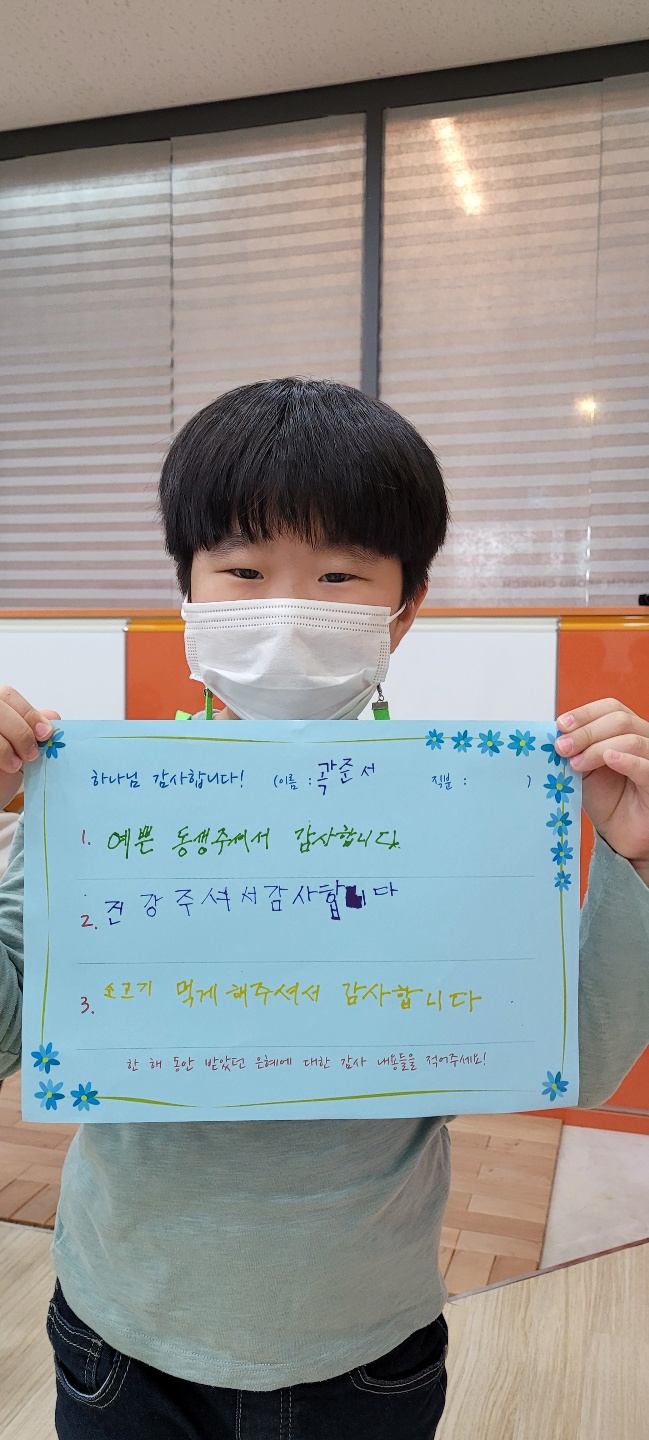 하나님 감사합니다! (이름 : 곽준서 직분 : )
1. 예쁜 동생주셔서 감사합니다.
2. 건강주셔서감사합니다
3. 소고기 먹게해주셔서 감사합니다
한 해 동안 받았던 은혜에 대한 감사 내용들을 적어주세요!